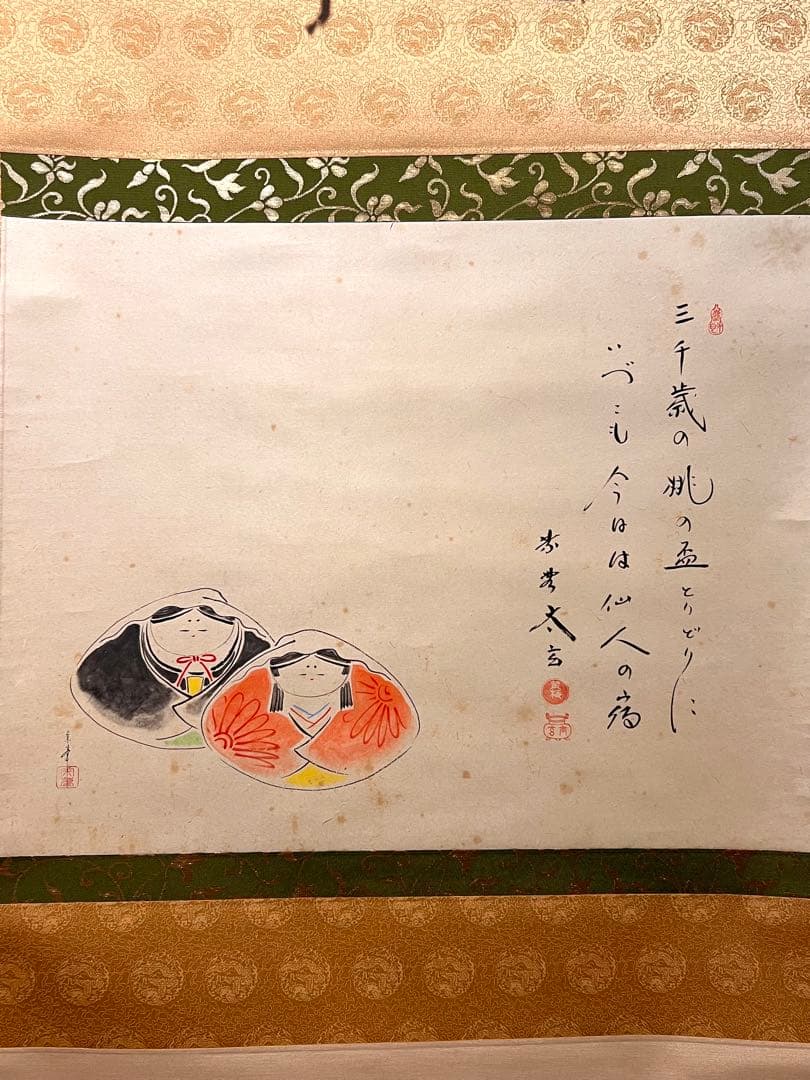 三千歳の桃の盃とりどりに
いづこも今日は仙人の宿
紫野太玄